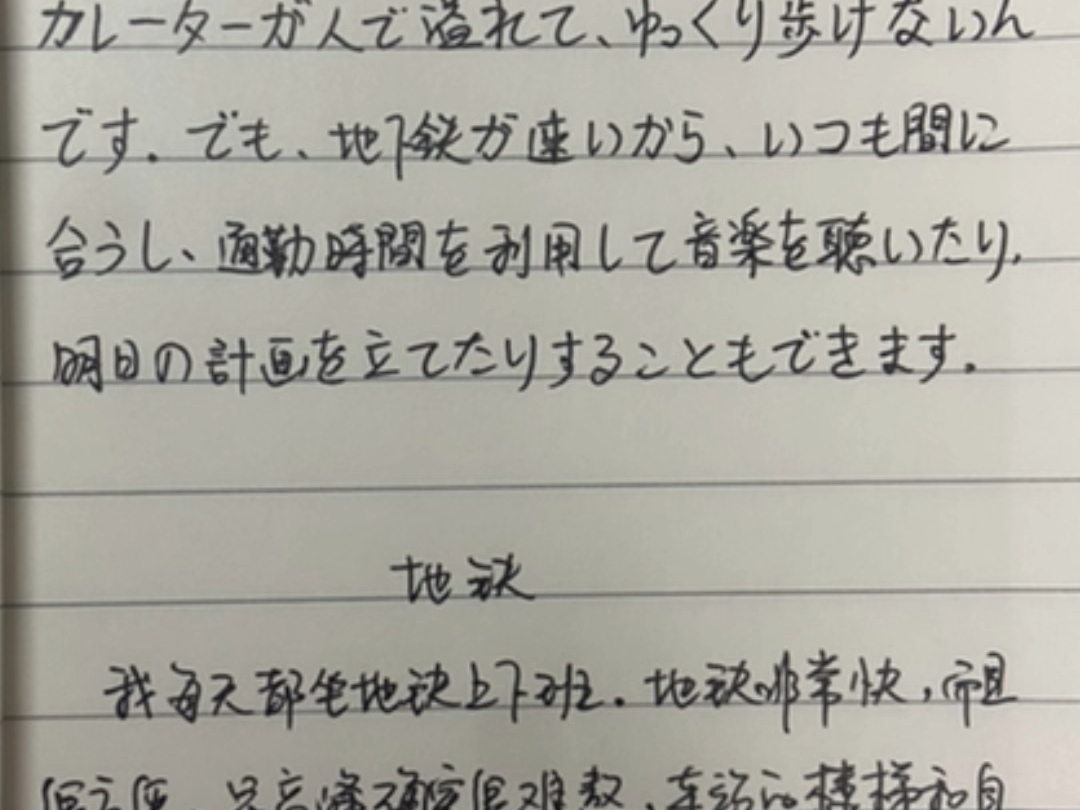 カレーターが人で溢れて、ゆっくり歩けないん
です。でも、地下鉄が速いから、いつも間に
合うし、通勤時間を利用して音楽を聴いたり、
明日の計画を立てたりすることもできます。
地铁
我每天都坐地铁上下班。地铁非常快，而且
很方便。只高峰
很难
楼梯和自